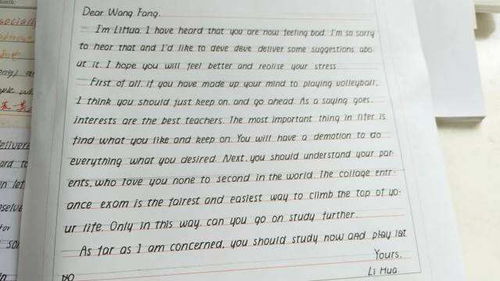 Dear Wang Fang.
I'm LiHua. I have heard that you are now feeling bad. I'm so sorry
to hear that and I'd like to deve deve deliver some suggestions abo
ut it. I hope you will feel better and realise your stress
First of all, if you have made up your mind to playing volleyball.
I think you should just keep on and go ahead. As a saying goes.
interests are the best teachers. The most important thing in lifer is
find what you like and keep on. You will have a demotion to do
everything what you desired. Next, you should understand your par-
ents, who love you none to second in the world. The collage entr-
ance exam is the fairest and easiest way to climb the top of yo-
ur life. Only in this way can you go on study further.
As far as I am concerned, you should study now and play lat
Yours.
Li Hua.